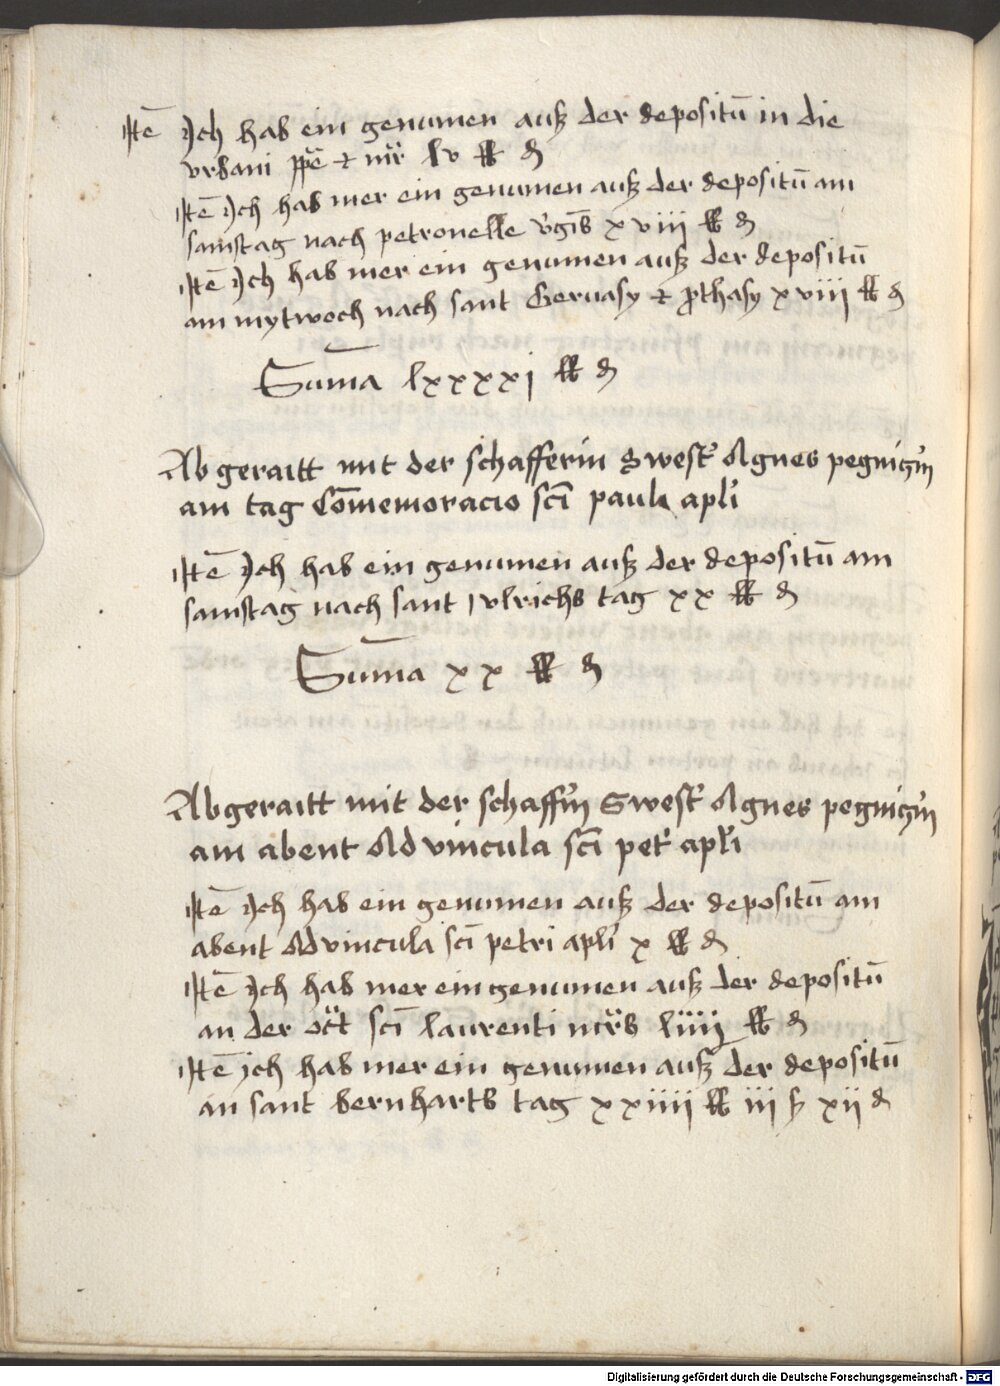 Itē Ich hab ein genumen auß der depositū in die
vrbani ppē et mr̄ lv ℔ ₰
Itē Ich hab mer ein genumen auß der depositū am
samstag nach petronelle v̄gīs xviii ℔ ₰
Itē Ich hab mer ein genumen auß der depositū
am mytwoch nach sant Geruasy et ꝓthasy xviij ℔ ₰
Sum̄a lxxxxj ℔ ₰
Ab geraitt mit der schafferin Swest' Agnes pegnicz'in
am tag Com̄emoracio sc̄i pauli apl'i
Itē Ich hab ein genumen auß der depositū am
samstag nach sant vlrichs tag xx ℔ ₰
Sum̄a xx ℔ ₰
Abgeraitt mit der schaff'in Swest' Agnes pegnicz'in
am abent Ad vincula sc̄i pet' apl'i
Itē Ich hab ein genumen auß der depositū am
abent Ad vincula sc̄i petri apl'i x ℔ ₰
Itē Ich hab mer ein genumen auß der depositū
an der oct̄ sc̄i laurenti mr̄s liiij ℔ ₰
Itē ich hab mer ein genumen auß der depositū
an sant bernharts tag xxiiij ℔ iij ß xij ₰
Digitalisierung gefördert durch die Deutsche Forschungsgemeinschaft - DFG